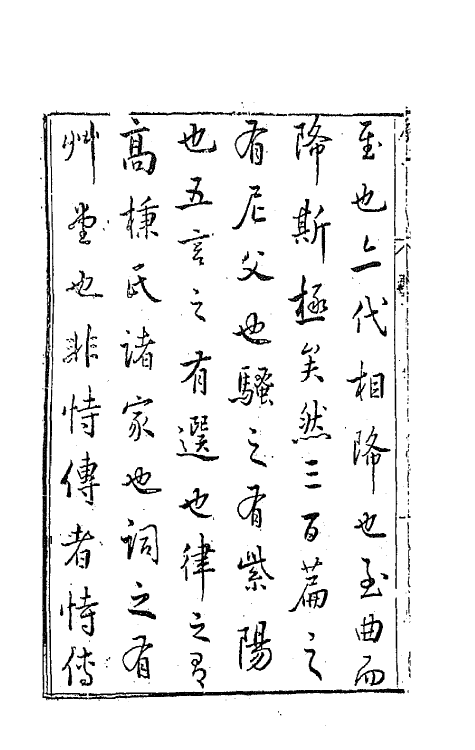 至也亦代相降也至曲而
降斯極矣然三百篇之
有尼父也騷之有紫陽
也五言之有選也律之有
高棅氏諸家也詞之有
艸堂也非恃傳者恃傳